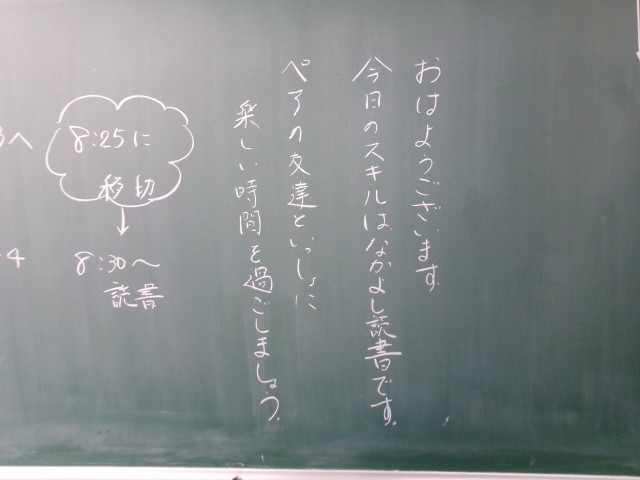 おはようございます
今日のスキルはなかよし読書です。
ペアの友達といっしょに
楽しい時間を過ごしましょう。
8:25に
移動
↓
8:30〜
読書
へ
4